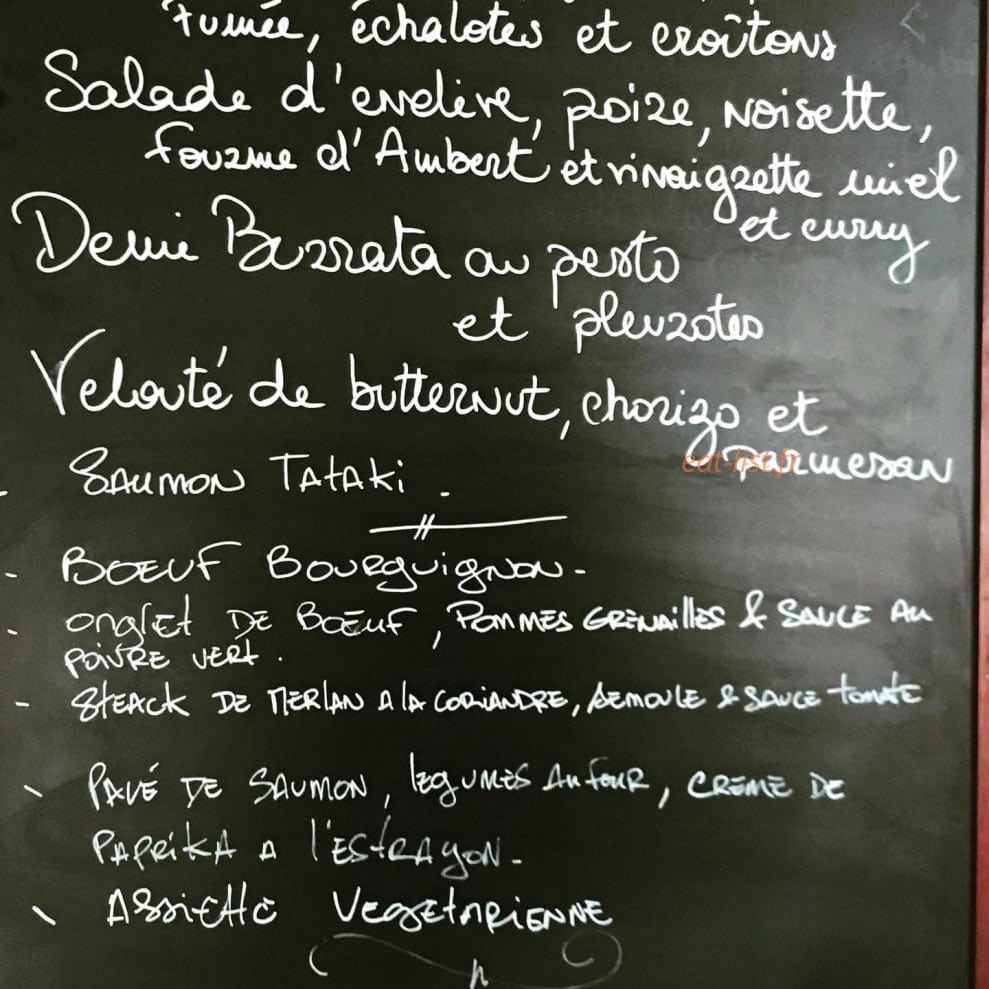 fumée, échalotes et croûtons
Salade d'endive, poire, noisette,
fourme d'Ambert et vinaigrette miel
et curry
Demi Burrata au pesto
et pleurotes
Velouté de butternut, chorizo et
Parmesan
eat-list.fr
SAUMON TATAKI.
- BOEUF BOURGUIGNON -
- ONGLET DE BOEUF, POMMES GRENAILLES & SAUCE AU
POIVRE VERT.
- STEACK DE MERLAN A LA CORIANDRE, SEMOULE & SAUCE TOMATE
- PAVÉ DE SAUMON, LÉGUMES AU FOUR, CRÈME DE
PAPRIKA A L'ESTRAGON -
- ASSIETTE VEGETARIENNE